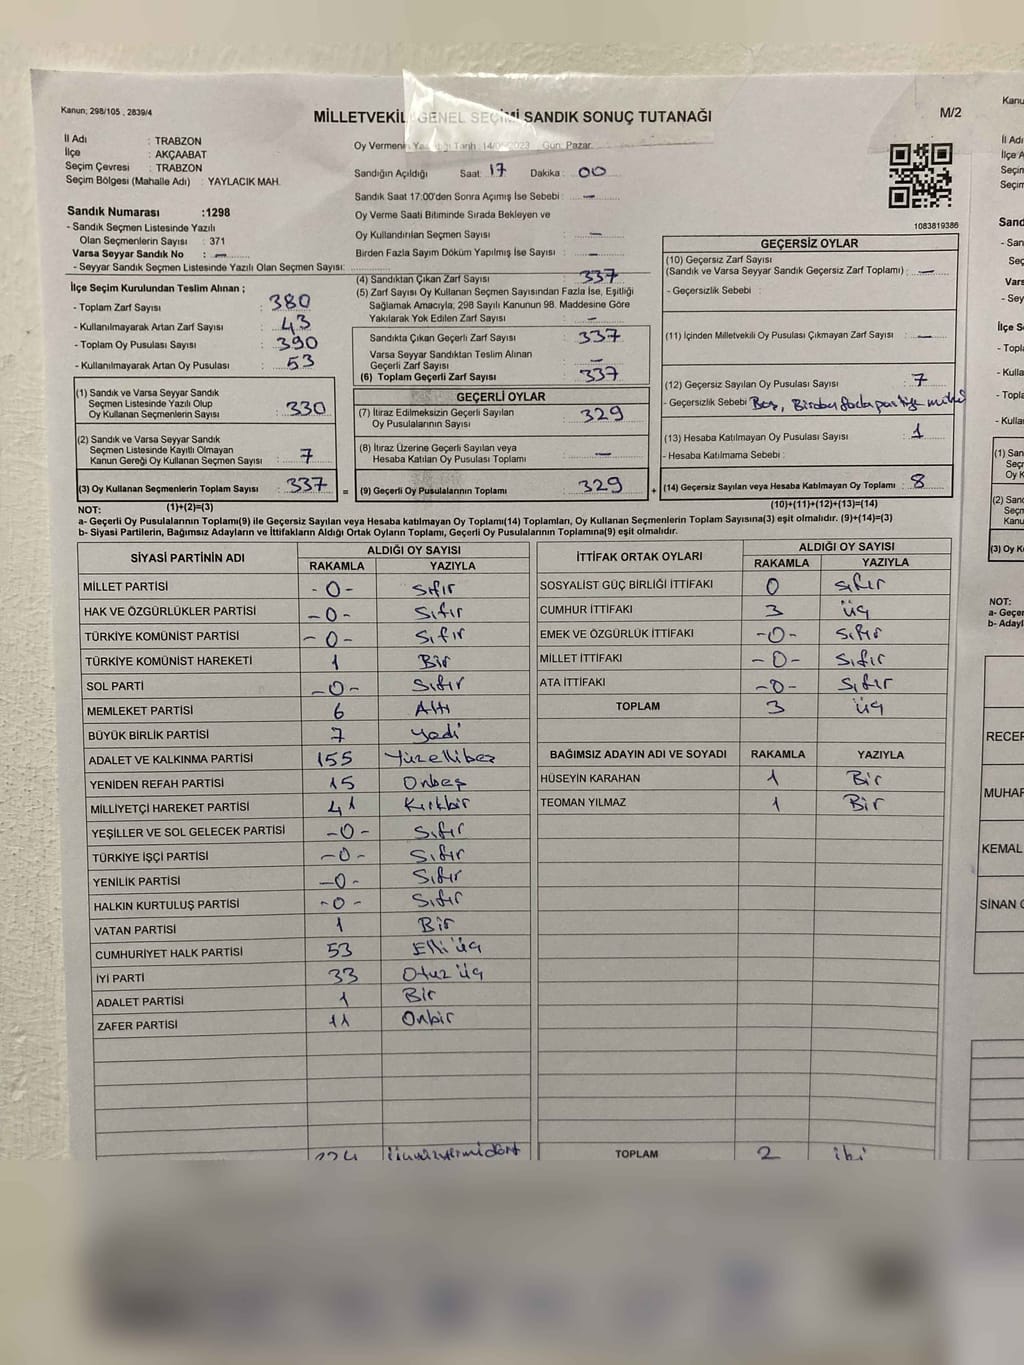 Kanun; 298/105 , 2839/4
MİLLETVEKİLİ GENEL SEÇİMİ SANDIK SONUÇ TUTANAĞI
M/2
İl Adı : TRABZON
İlçe : AKÇAABAT
Seçim Çevresi : TRABZON
Seçim Bölgesi (Mahalle Adı) : YAYLACIK MAH.
Sandık Numarası :1298
- Sandık Seçmen Listesinde Yazılı
Olan Seçmenlerin Sayısı : 371
Varsa Seyyar Sandık No : —
- Seyyar Sandık Seçmen Listesinde Yazılı Olan Seçmen Sayısı:
Oy Vermenin Tarih 14/05/2023 Gün: Pazar.
Sandığın Açıldığı Saat: 17 Dakika : 00
Sandık Saat 17:00'den Sonra Açımış İse Sebebi : —
Oy Verme Saati Bitiminde Sırada Bekleyen ve
Oy Kullandırılan Seçmen Sayısı : —
Birden Fazla Sayım Döküm Yapılmış İse Sayısı : —
1083819386
İlçe Seçim Kurulundan Teslim Alınan ;
- Toplam Zarf Sayısı : 380
- Kullanılmayarak Artan Zarf Sayısı : 43
- Toplam Oy Pusulası Sayısı : 390
- Kullanılmayarak Artan Oy Pusulası : 53
(1) Sandık ve Varsa Seyyar Sandık
Seçmen Listesinde Yazılı Olup
Oy Kullanan Seçmenlerin Sayısı : 330
(2) Sandık ve Varsa Seyyar Sandık
Seçmen Listesinde Kayıtlı Olmayan
Kanun Gereği Oy Kullanan Seçmen Sayısı : 7
(3) Oy Kullanan Seçmenlerin Toplam Sayısı : 337 =
(1)+(2)=(3)
(4) Sandıktan Çıkan Zarf Sayısı : 337
(5) Zarf Sayısı Oy Kullanan Seçmen Sayısından Fazla İse, Eşitliği
Sağlamak Amacıyla; 298 Sayılı Kanunun 98. Maddesine Göre
Yakılarak Yok Edilen Zarf Sayısı : —
Sandıkta Çıkan Geçerli Zarf Sayısı : 337
Varsa Seyyar Sandıktan Teslim Alınan
Geçerli Zarf Sayısı : —
(6) Toplam Geçerli Zarf Sayısı : 337
GEÇERLİ OYLAR
(7) İtiraz Edilmeksizin Geçerli Sayılan
Oy Pusulalarının Sayısı : 329
(8) İtiraz Üzerine Geçerli Sayılan veya
Hesaba Katılan Oy Pusulası Toplamı : —
(9) Geçerli Oy Pusulalarının Toplamı : 329 +
GEÇERSİZ OYLAR
(10) Geçersiz Zarf Sayısı
(Sandık ve Varsa Seyyar Sandık Geçersiz Zarf Toplamı) : —
- Geçersizlik Sebebi :
(11) İçinden Milletvekili Oy Pusulası Çıkmayan Zarf Sayısı : —
(12) Geçersiz Sayılan Oy Pusulası Sayısı : 7
- Geçersizlik Sebebi : Boş, Birden fazla partiye
(13) Hesaba Katılmayan Oy Pusulası Sayısı : 1
- Hesaba Katılmama Sebebi :
(14) Geçersiz Sayılan veya Hesaba Katılmayan Oy Toplamı : 8
(10)+(11)+(12)+(13)=(14)
NOT:
a- Geçerli Oy Pusulaları Toplamı(9) ile Geçersiz Sayılan veya Hesaba katılmayan Oy Toplamı(14) Toplamları, Oy Kullanan Seçmenlerin Toplam Sayısına(3) eşit olmalıdır. (9)+(14)=(3)
b- Siyasi Partilerin, Bağımsız Adayların ve İttifakların Aldığı Ortak Oyların Toplamı, Geçerli Oy Pusulalarının Toplamına(9) eşit olmalıdır.
SİYASİ PARTİNİN ADI ALDIĞI OY SAYISI
RAKAMLA YAZIYLA
MİLLET PARTİSİ -0- Sıfır
HAK VE ÖZGÜRLÜKLER PARTİSİ -0- Sıfır
TÜRKİYE KOMÜNİST PARTİSİ -0- Sıfır
TÜRKİYE KOMÜNİST HAREKETİ 1 Bir
SOL PARTİ -0- Sıfır
MEMLEKET PARTİSİ 6 Altı
BÜYÜK BİRLİK PARTİSİ 7 yedi
ADALET VE KALKINMA PARTİSİ 155 Yüzellibeş
YENİDEN REFAH PARTİSİ 15 Onbeş
MİLLİYETÇİ HAREKET PARTİSİ 41 Kırkbir
YEŞİLLER VE SOL GELECEK PARTİSİ -0- Sıfır
TÜRKİYE İŞÇİ PARTİSİ -0- Sıfır
YENİLİK PARTİSİ -0- Sıfır
HALKIN KURTULUŞ PARTİSİ -0- Sıfır
VATAN PARTİSİ 1 Bir
CUMHURİYET HALK PARTİSİ 53 Elli üç
İYİ PARTİ 33 Otuz üç
ADALET PARTİSİ 1 Bir
ZAFER PARTİSİ 11 Onbir
İTTİFAK ORTAK OYLARI ALDIĞI OY SAYISI
RAKAMLA YAZIYLA
SOSYALİST GÜÇ BİRLİĞİ İTTİFAKI 0 sıfır
CUMHUR İTTİFAKI 3 üç
EMEK VE ÖZGÜRLÜK İTTİFAKI -0- Sıfır
MİLLET İTTİFAKI -0- Sıfır
ATA İTTİFAKI -0- Sıfır
TOPLAM 3 üç
BAĞIMSIZ ADAYIN ADI VE SOYADI RAKAMLA YAZIYLA
HÜSEYİN KARAHAN 1 Bir
TEOMAN YILMAZ 1 Bir
TOPLAM 2 iki
Kanu
İl Adı
İlçe A
Seçin
Seçim
Sand
- San
Olan
Varsa
- Sey
İlçe S
- Topl
- Kulla
- Topla
- Kullan
(1) San
Seçr
Oy K
(2) Sand
Seçm
Kanu
(3) Oy K
NOT:
a- Geçer
b- Adayl
RECEF
MUHAR
KEMAL
SİNAN